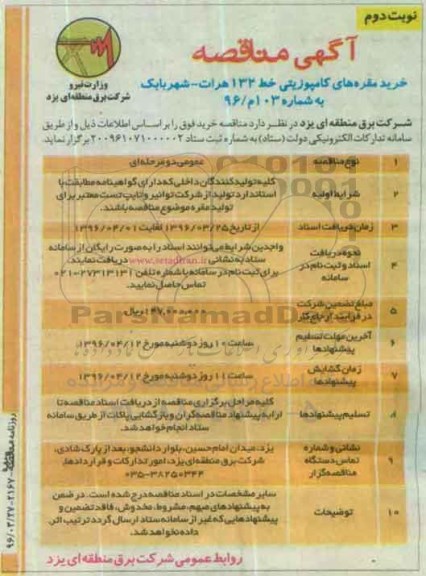 نوبت دوم
آگهی مناقصه
وزارت نیرو
شرکت برق منطقه‌ای یزد
خرید مقره‌های کامپوزیتی خط ۱۳۲ هرات-شهربابک
به شماره ۱۰۳م/۹۶
شرکت برق منطقه‌ای یزد در نظر دارد مناقصه خرید فوق را بر اساس اطلاعات ذیل و از طریق
سامانه تدارکات الکترونیکی دولت (ستاد) به شماره ثبت ستاد ۲۰۰۹۶۱۰۷۱۰۰۰۰۰۲ برگزار نماید.
۱ نوع مناقصه عمومی دو مرحله‌ای
۲ شرایط اولیه کلیه تولیدکنندگان داخلی که دارای گواهینامه مطابقت با
استاندارد تولید از شرکت توانیر و تایپ تست معتبر برای
تولید مقره موضوع مناقصه باشند.
۳ زمان دریافت اسناد از تاریخ ۱۳۹۶/۰۳/۲۵ لغایت ۱۳۹۶/۰۴/۰۱
۴ نحوه دریافت اسناد و ثبت نام در سامانه واجدین شرایط می‌توانند اسناد را به صورت رایگان از سامانه
ستاد به نشانی www.setadiran.ir دریافت نمایند.
برای ثبت نام در سامانه با شماره تلفن ۲۷۳۱۳۱۳۱-۰۲۱
تماس حاصل نمایید.
۵ مبلغ تضمین شرکت در فرآیند ارجاع کار ۱۴۷,۰۰۰,۰۰۰ ریال
۶ آخرین مهلت تسلیم پیشنهادها ساعت ۱۰ روز دوشنبه مورخ ۱۳۹۶/۰۴/۱۲
۷ زمان گشایش پیشنهادها ساعت ۱۱ روز دوشنبه مورخ ۱۳۹۶/۰۴/۱۲
۸ تسلیم پیشنهادها کلیه مراحل برگزاری مناقصه از دریافت اسناد مناقصه تا
ارایه پیشنهاد مناقصه‌گران و بازگشایی پاکات از طریق سامانه
ستاد انجام خواهد شد.
۹ نشانی و شماره تماس دستگاه مناقصه‌گزار یزد، میدان امام حسین، بلوار دانشجو، بعد از پارک شادی،
شرکت برق منطقه‌ای یزد، امور تدارکات و قراردادها،
۰۳۵-۳۸۲۵۰۳۴۴
۱۰ توضیحات سایر مشخصات در اسناد مناقصه درج شده است. در ضمن
به پیشنهادهای مبهم، مشروط، مخدوش، فاقد تضمین و
پیشنهادهایی که غیر از سامانه ستاد ارسال گردد ترتیب اثر
داده نخواهد شد.
روابط عمومی شرکت برق منطقه‌ای یزد
ParsNamadData